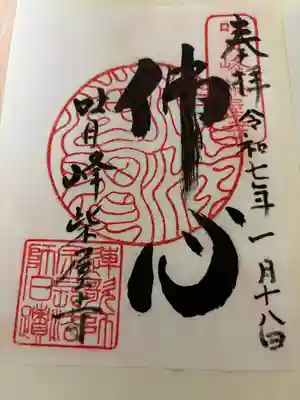 奉拝 令和七年一月十八日
佛心
吐月峰柴屋寺